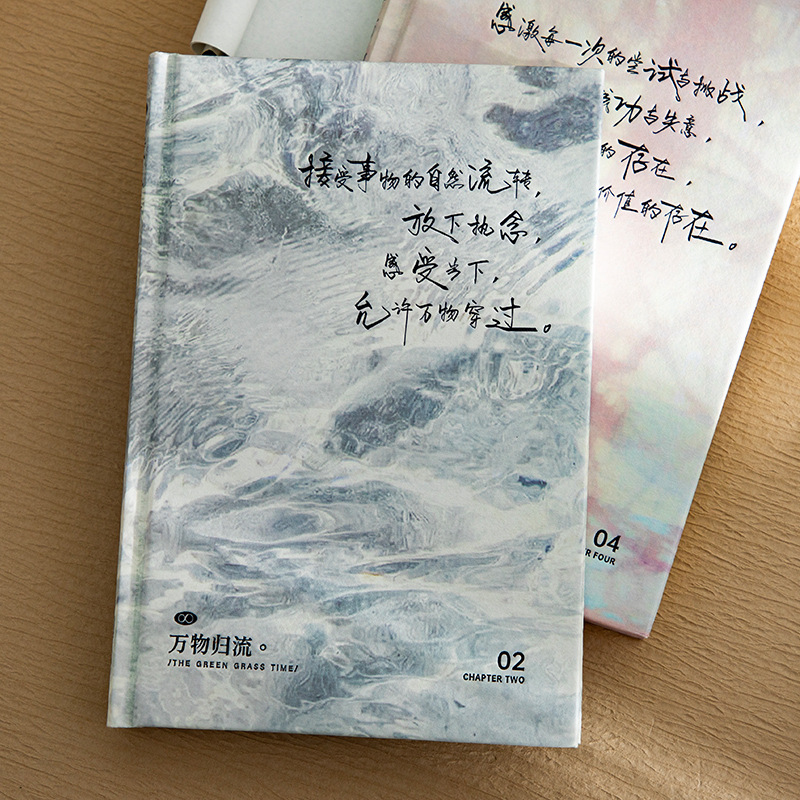 接受事物的自然流转，
放下执念，
感受当下，
允许万物穿过。
万物归流。
/THE GREEN GRASS TIME/
02
CHAPTER TWO
感激每一次的尝试与挑战，
功与失意，
的存在，
价值的存在。
04
ER FOUR